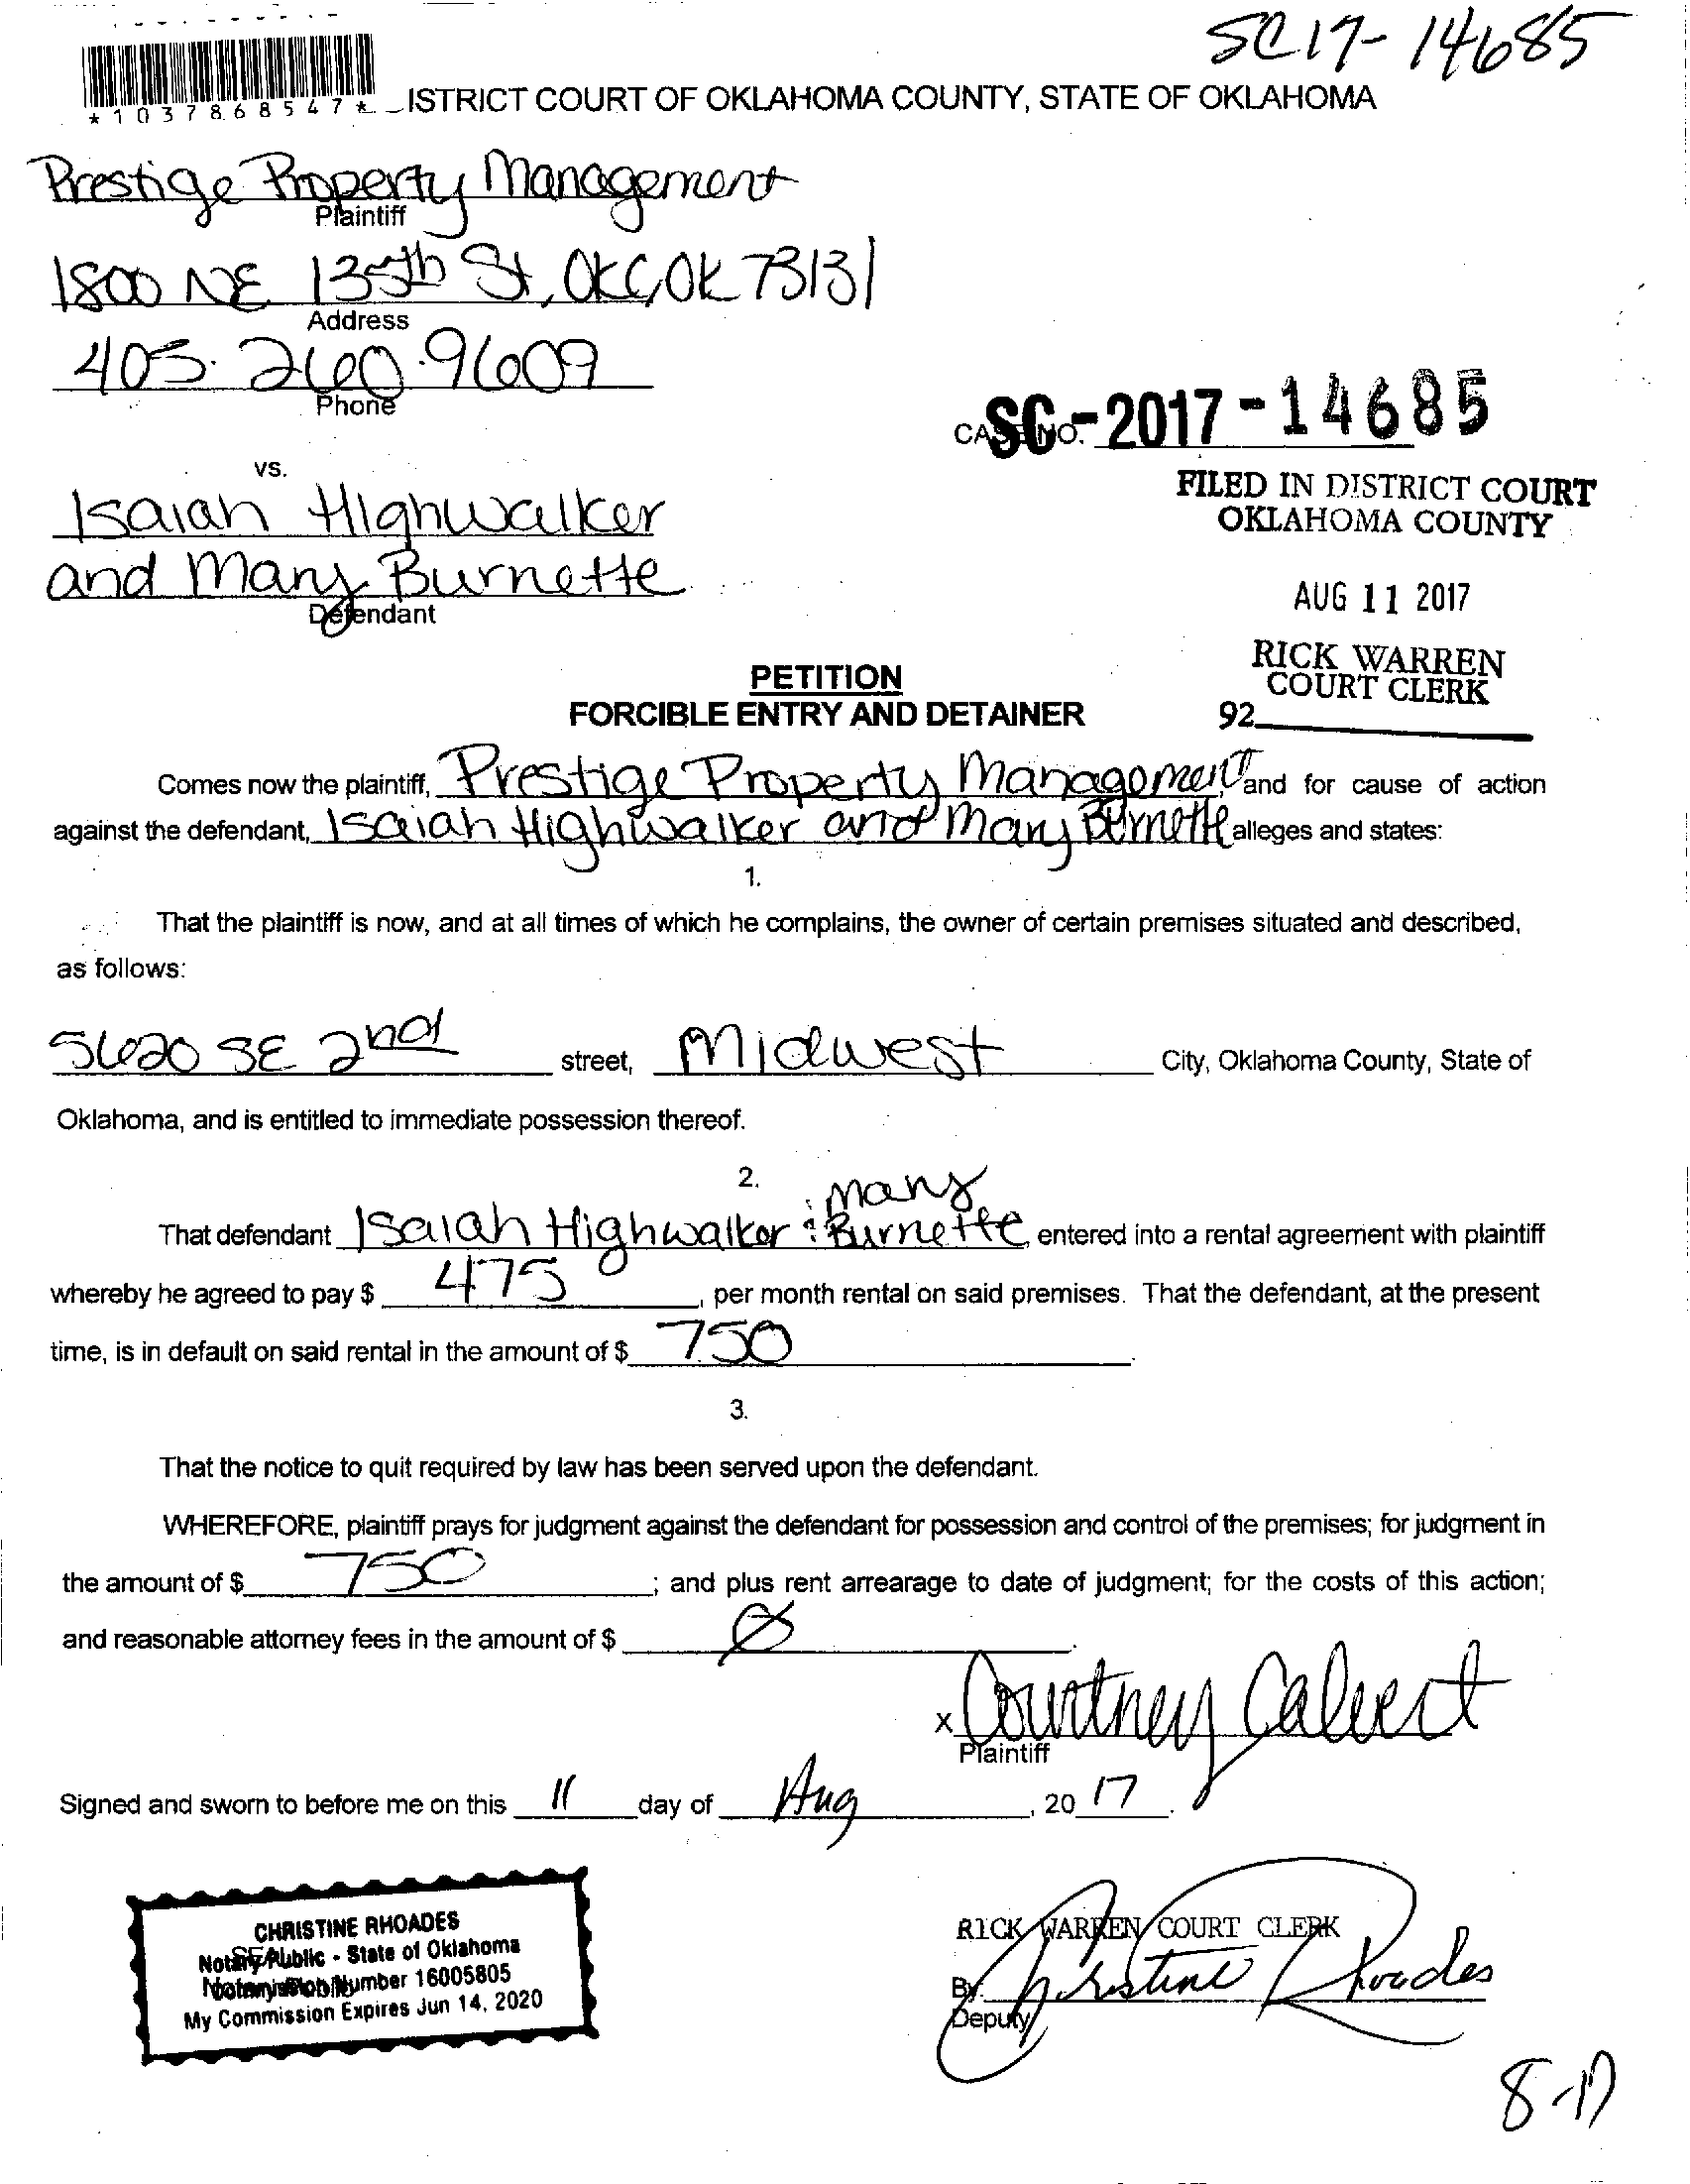 SC17-14685
*1037868547* ISTRICT COURT OF OKLAHOMA COUNTY, STATE OF OKLAHOMA
Prestige Property Management
Plaintiff
1800 NE 135th St, OKC, OK 73131
Address
405.260.9609
Phone
CASE NO. SC-2017-14685
vs.
FILED IN DISTRICT COURT
OKLAHOMA COUNTY
Isaiah Highwalker
and Mary Burnette
Defendant
AUG 11 2017
RICK WARREN
COURT CLERK
92
PETITION
FORCIBLE ENTRY AND DETAINER
Comes now the plaintiff, Prestige Property Management and for cause of action
against the defendant, Isaiah Highwalker and Mary Burnette alleges and states:
1.
That the plaintiff is now, and at all times of which he complains, the owner of certain premises situated and described,
as follows:
5620 SE 2nd street, Midwest City, Oklahoma County, State of
Oklahoma, and is entitled to immediate possession thereof.
2.
That defendant Isaiah Highwalker & Mary Burnette, entered into a rental agreement with plaintiff
whereby he agreed to pay $ 475, per month rental on said premises. That the defendant, at the present
time, is in default on said rental in the amount of $ 750.
3.
That the notice to quit required by law has been served upon the defendant.
WHEREFORE, plaintiff prays for judgment against the defendant for possession and control of the premises; for judgment in
the amount of $ 750; and plus rent arrearage to date of judgment; for the costs of this action;
and reasonable attorney fees in the amount of $ Ø.
x Courtney Calvert
Plaintiff
Signed and sworn to before me on this 11 day of Aug, 20 17.
CHRISTINE RHOADES
Notary Public - State of Oklahoma
Number 16005805
My Commission Expires Jun 14, 2020
RICK WARREN COURT CLERK
By Christine Rhoades
Deputy
8-17